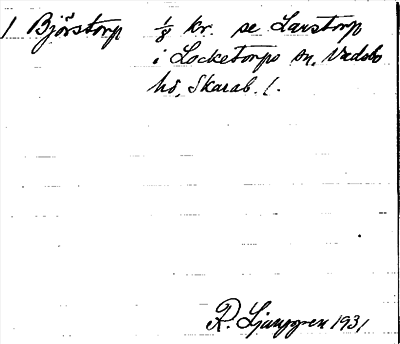 1 Björstorp 1/8 kr. se Larstorp
i Locketorps sn, Vadsbo
hd, Skarab. l.
R. Ljunggren 1931